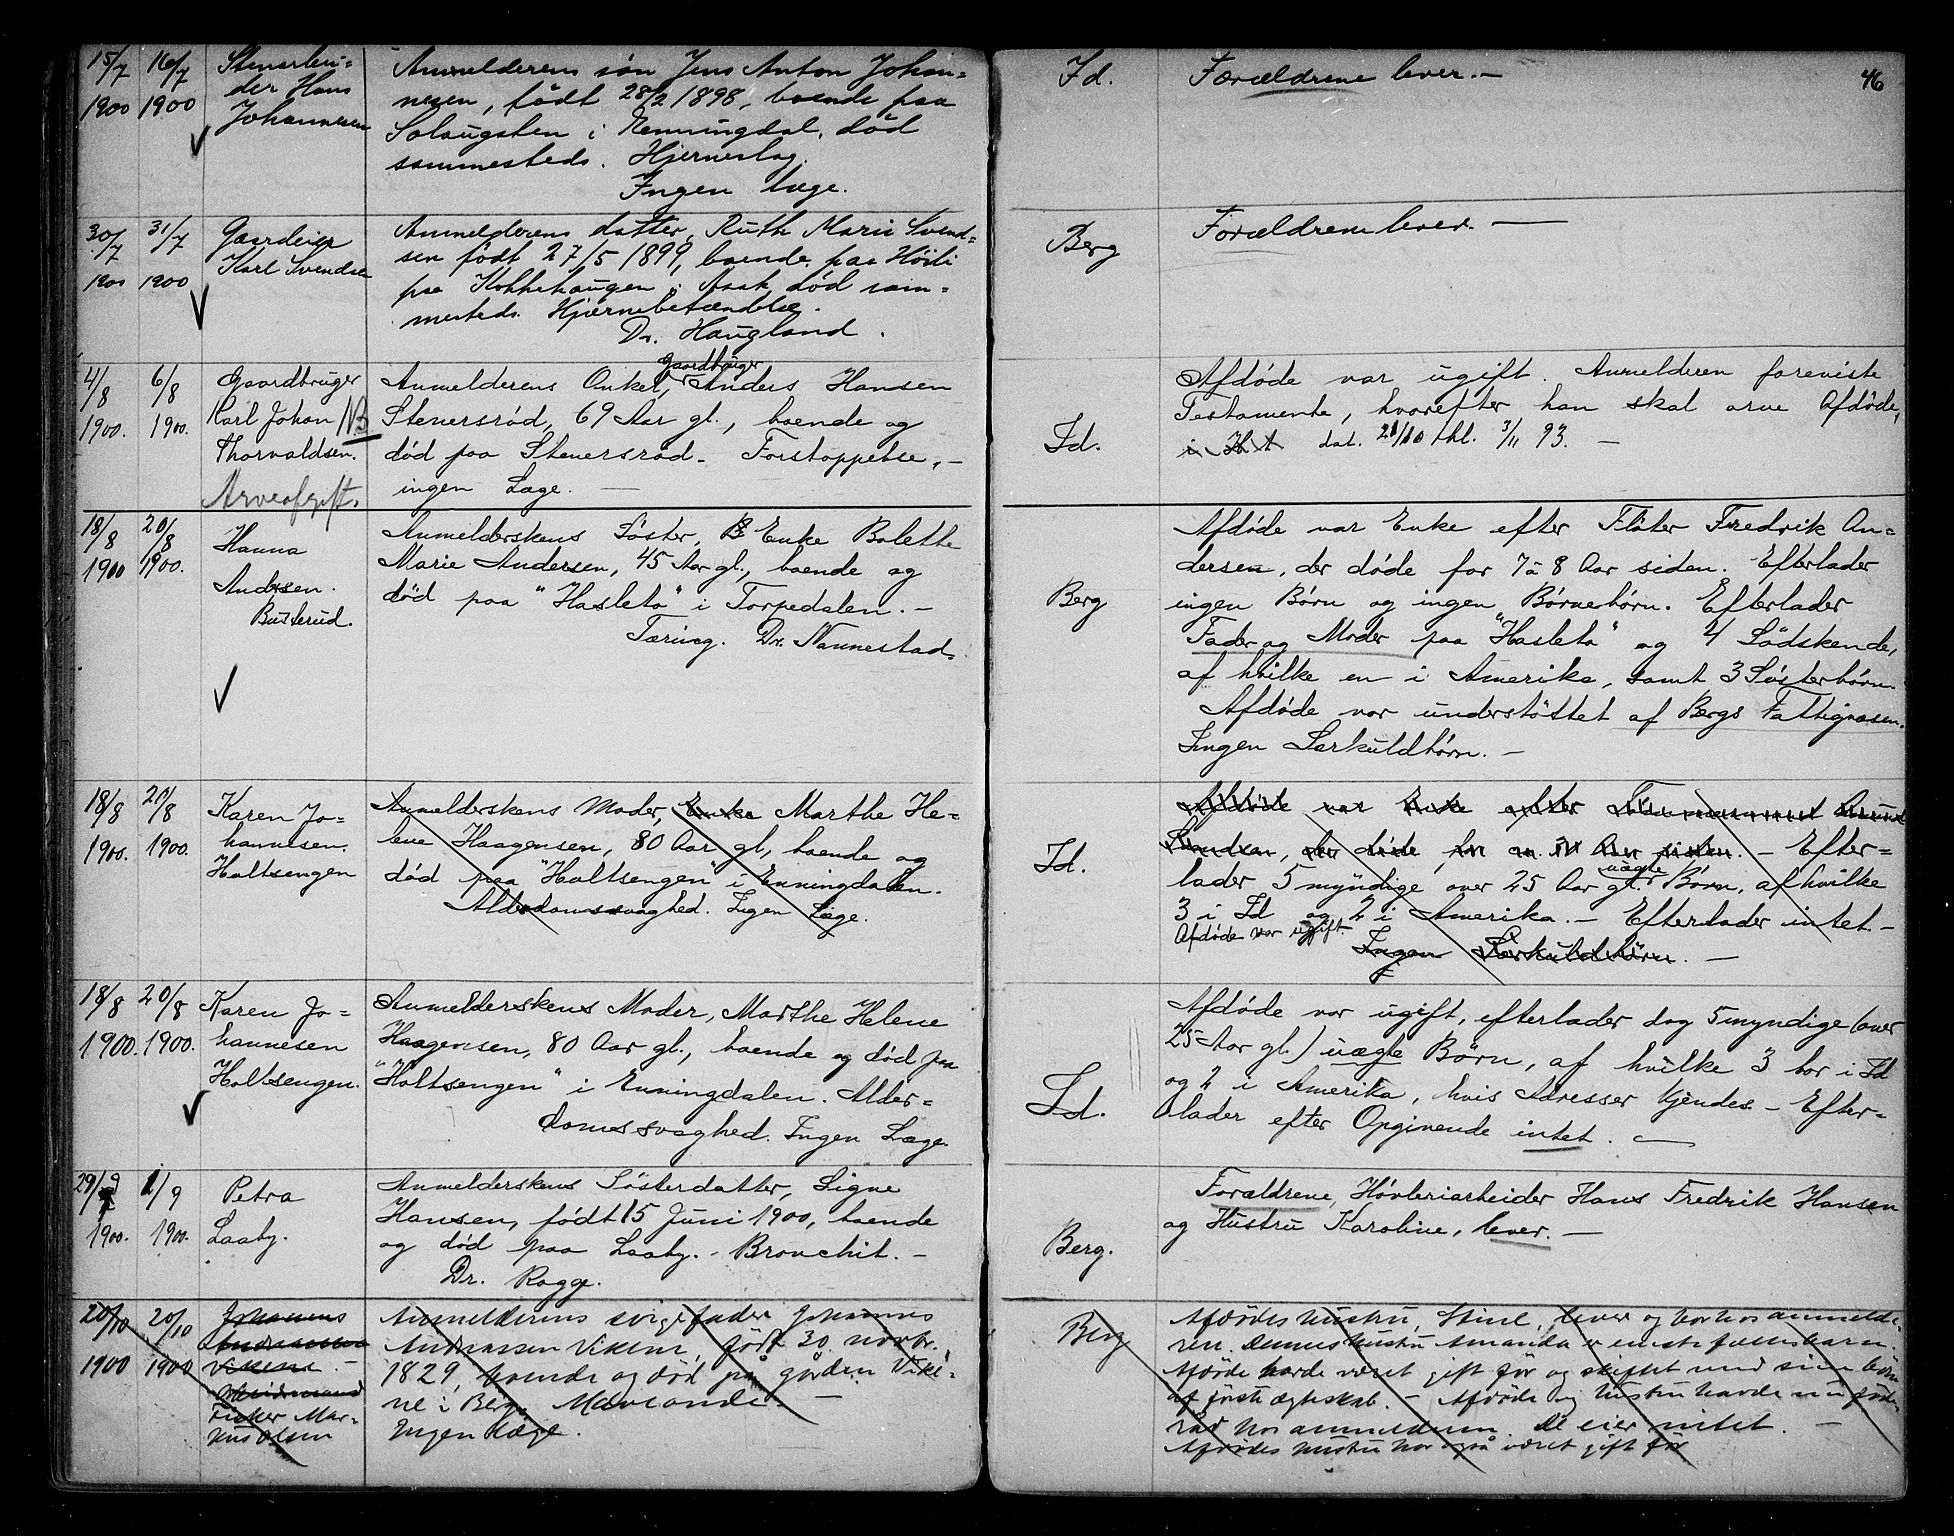 46
15/7 1900
16/7 1900
Stenarbei-
der Hans
Johannesen
Anmelderens søn Jens Anton Johan-
nesen, født 28/2 1898, boende paa
i Enningdal, död
sammesteds. Hjerneslag.
Ingen læge.
Id.
Forældrene lever. —
30/7 1900
31/7 1900
Gaardeier
Karl Svendsen
Anmelderens datter, Ruth Marie Svend-
sen født 27/5 1899, boende paa
paa i Asak, død sam-
mesteds. Hjernebetændelse.
Dr. Haugland.
Berg
Forældrene lever. —
4/8 1900.
6/8 1900.
Gaardbruger
Karl Johan
Thorvaldsen.
NB
Arveafgift.
Gaardbruger
Anmelderens Onkel, Anders Hansen
Stenersrød, 69 Aar gl., boende og
død paa Stenersrød. Forstoppelse, —
ingen Læge. —
Id.
Afdøde var ugift. Anmelderen foreviste
Testamente, hvorefter han skal arve Afdøde,
dat. 21/10 thl. 3/11 93. —
18/8 1900
20/8 1900.
Hanna
Andersen.
Busterud.
Anmelderskens Søster, Enke Bolette
Marie Andersen, 45 Aar gl., boende og
død paa "Hasleto" i Torpedalen. —
Tæring. Dr. Nannestad.
Berg
Afdøde var Enke efter Fløter Fredrik An-
dersen, der døde for 7 à 8 Aar siden. Efterlader
ingen Børn og ingen Børnebørn. Efterlader
Fader og Moder paa "Hasleto" og 4 Södskende,
af hvilke en i Amerika, samt 3 Søsterbørn.
Afdøde var understöttet af Bergs Fattigvæsen.
Ingen Særkuldbørn. —
18/8 1900.
20/8 1900.
Karen Jo-
hannesen.
Holtsengen
Anmelderskens Moder, Enke Marthe He-
lene Haagensen, 80 Aar gl., boende og
død paa "Holtsengen" i Enningdalen.
Alderdomssvaghed. Ingen Læge.
Id.
Afdøde var Enke efter
der døde for Aar siden. — Efter-
uægte
lader 5 myndige, over 25 Aar gl. Børn, af hvilke
3 i Id og 2 i Amerika. — Efterlader intet. —
Afdøde var ugift.
Ingen Særkuldsbörn. —
18/8 1900.
20/8 1900.
Karen Jo-
hannesen
Holtsengen.
Anmelderskens Moder, Marthe Helene
Haagensen, 80 Aar gl., boende og død paa
"Holtsengen" i Enningdalen. Alder-
domssvaghed. Ingen Læge.
Id.
Afdøde var ugift, efterlader dog 5 myndige (over
25 Aar gl.) uægte Börn, af hvilke 3 bor i Id
og 2 i Amerika, hvis Adresser kjendes. — Efter-
lader efter Opgivende intet. —
29/ 1900.
1/9 1900.
Petra
Laaby.
Anmelderskens Søsterdatter, Signe
Hansen, født 15 Juni 1900, boende
og død paa Laaby. — Bronchit. —
Dr. Rogge.
Berg.
Forældrene, Høvleriarbeider Hans Fredrik Hansen
og Hustru Karoline, lever. —
20/10 1900
20/10 1900
Johannes
Andreassen
Vikene. —
Fisker Mar-
ius Olsen
Anmelderens svigefader Johannes
Andreassen Vikene, född 30. novbr.
1829, boende og död på gården Vike-
ne i Berg. —
Ingen læge.
Berg
Afdödes hustru, Stine, lever og bor hos anmelde-
ren. Dennes hustru Amanda er eneste fællesbarn.
Afdöde havde været gift för og skiftet med sine börn
af förste ægteskab. — Afdöde og hustru havde nu föde-
råd hos anmelderen. De eier intet. —
Afdödes hustru har også været gift för